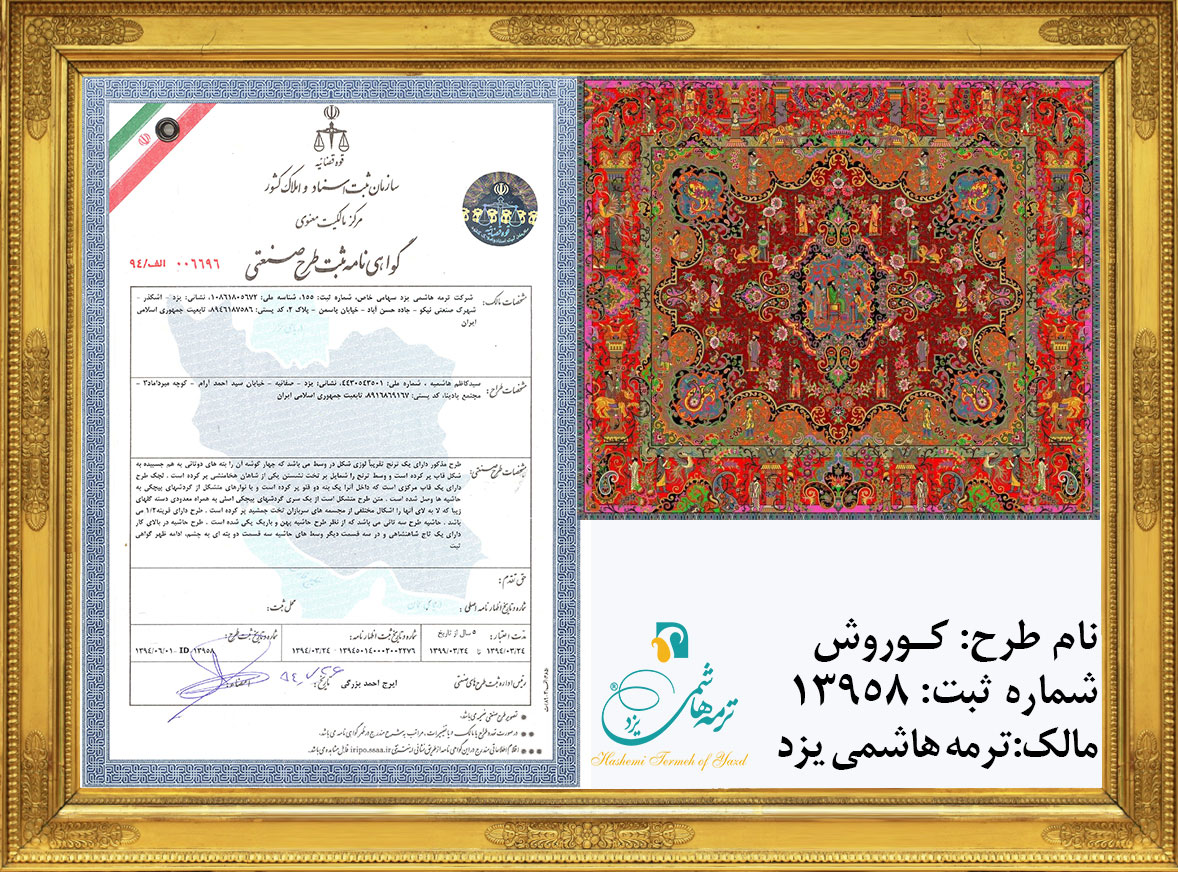 قوه قضائیه
سازمان ثبت اسناد و املاک کشور
مرکز مالکیت معنوی
گواهی نامه ثبت طرح صنعتی
۰۰۶۶۹۶ الف/۹۴
مشخصات مالک: شرکت ترمه هاشمی یزد سهامی خاص، شماره ثبت: ۱۵۵، شناسه ملی: ۱۰۸۶۱۸۰۵۶۷۲، نشانی: یزد - اشکذر -
شهرک صنعتی نیکو - جاده حسن آباد - خیابان یاسمن - پلاک ۲، کد پستی: ۸۹۴۶۱۸۷۵۸۶، تابعیت جمهوری اسلامی
ایران
مشخصات طراح: سیدکاظم هاشمیه ، شماره ملی: ۴۴۳۰۵۴۳۵۰۱، نشانی: یزد - صفائیه - خیابان سید احمد آرام - کوچه میرداماد۳ -
مجتمع پادینا، کد پستی: ۸۹۱۶۸۶۹۱۶۷، تابعیت جمهوری اسلامی ایران
مشخصات طرح صنعتی: طرح مذکور دارای یک ترنج تقریباً لوزی شکل در وسط می باشد که چهار گوشه آن را بته های دوتائی به هم چسبیده به
شکل قاب پر کرده است و وسط ترنج را شمایل بر تخت نشستن یکی از شاهان هخامنشی پر کرده است . لچک طرح
دارای یک قاب مرکزی است که داخل آنرا یک بته دو قلو پر کرده است و با نوارهای متشکل از گردشهای بیچکی به
حاشیه ها وصل شده است . متن طرح متشکل است از یک سری گردشهای بیچکی اصلی به همراه معدودی دسته گلهای
زیبا که لا به لای آنها را اشکال مختلفی از مجسمه های سربازان تخت جمشید پر کرده است . طرح دارای قرینه۱/۲ می
باشد . حاشیه طرح سه تائی می باشد که از نظر طرح حاشیه پهن و باریک یکی شده است . طرح حاشیه در بالای کار
دارای یک تاج شاهنشاهی و در سه قسمت دیگر وسط های حاشیه سه قسمت دو بته ای به چشم، ادامه ظهر گواهی
ثبت
حق تقدم :
شماره و تاریخ اظهارنامه اصلی : محل ثبت:
مدت اعتبار: ۵ سال از تاریخ شماره و تاریخ ثبت اظهارنامه: شماره و تاریخ ثبت طرح:
۱۳۹۴/۰۳/۲۴ تا ۱۳۹۹/۰۳/۲۴ ۱۳۹۴/۰۳/۲۴ - ۱۳۹۴۵۰۱۴۰۰۰۲۰۰۲۲۷۶ ۱۳۹۴/۰۶/۰۱- ID /۱۳۹۵۸
رئیس اداره ثبت طرح های صنعتی ایرج احمد بزرگی تاریخ: امضاء:
تصویر طرح صنعتی ضمیمه می باشد.
iripo.ssaa.ir
نام طرح: کوروش
شماره ثبت: ۱۳۹۵۸
مالک:ترمه هاشمی یزد
ترمه هاشمی
یزد
®
Hashemi Termeh of Yazd